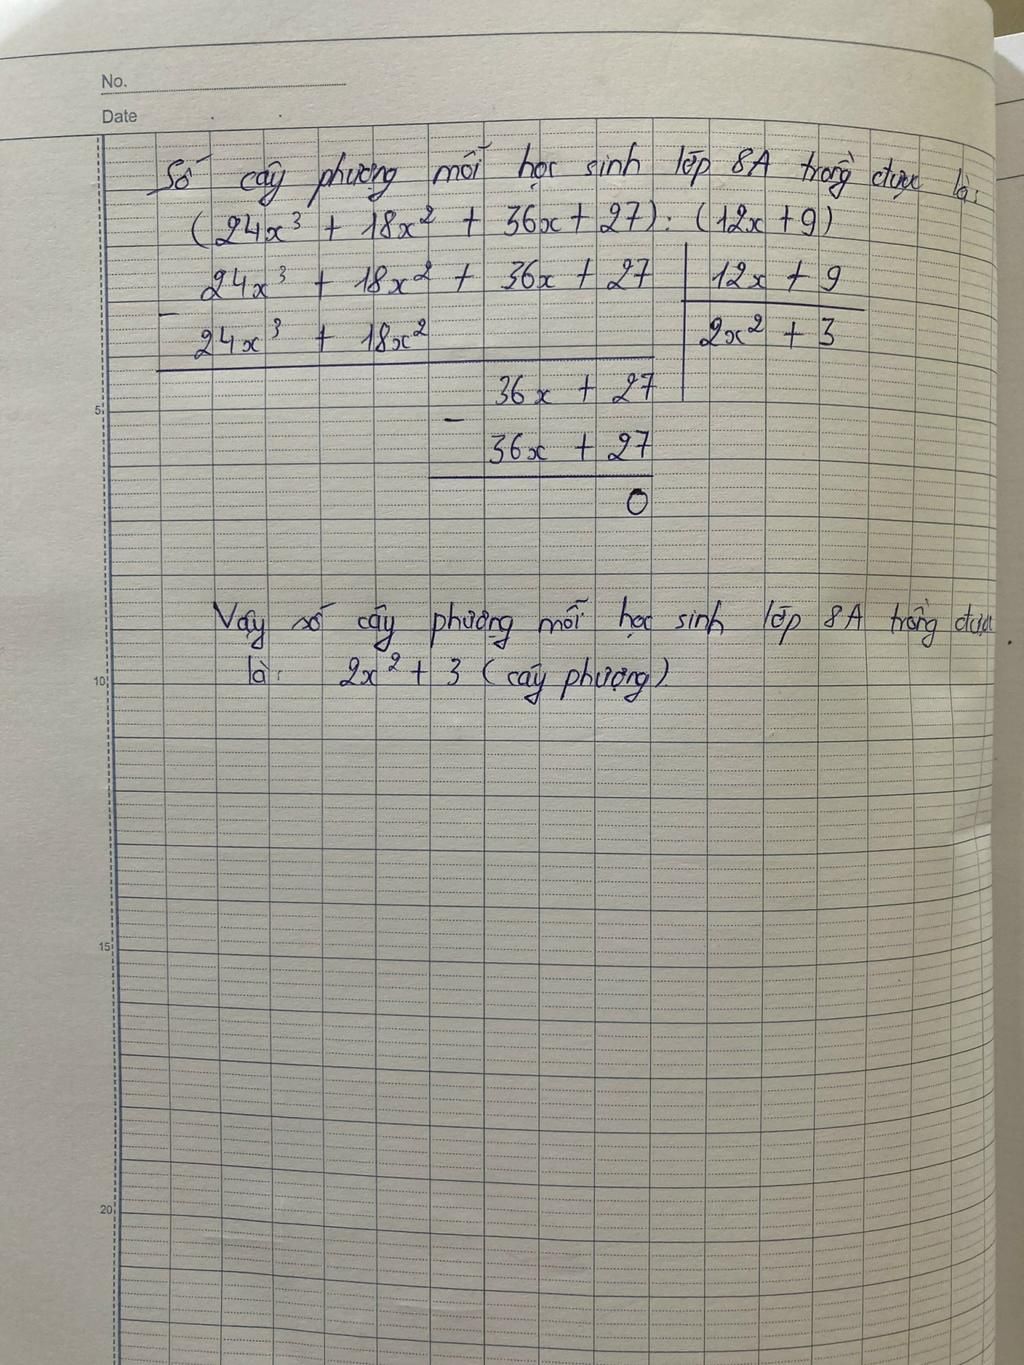 No.
Date
Số cây phượng mỗi học sinh lớp 8A trồng được là:
(24x³ + 18x² + 36x + 27) : (12x + 9)
24x³ + 18x² + 36x + 27 | 12x + 9
− 24x³ + 18x² | 2x² + 3
36x + 27
− 36x + 27
0
Vậy số cây phượng mỗi học sinh lớp 8A trồng được
là: 2x² + 3 (cây phượng)
5
10
15
20